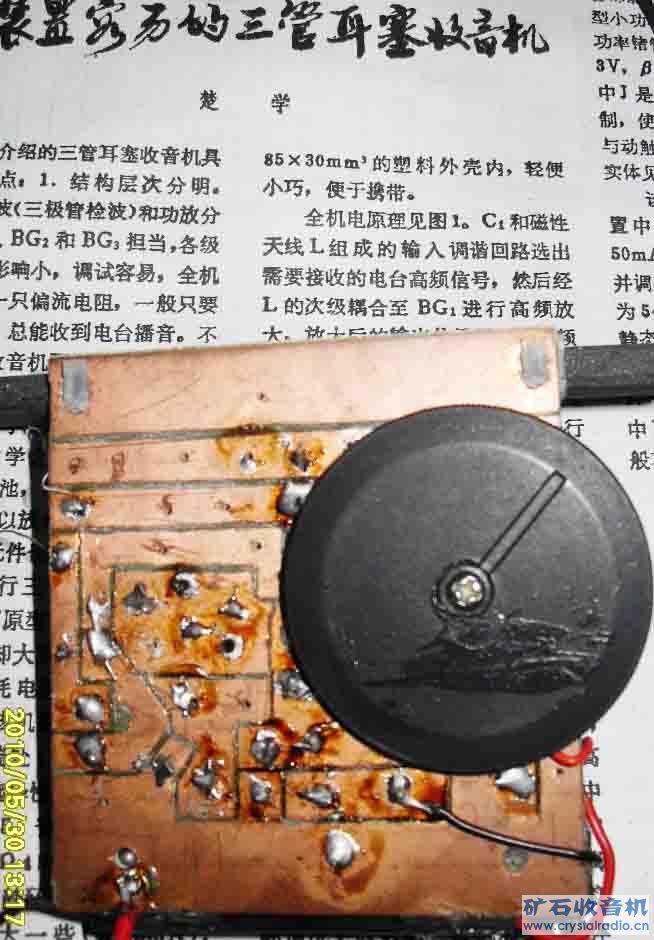 装置容易的三管耳塞收音机
楚 学
介绍的三管耳塞收音机具
点：1．结构层次分明。
波（三极管检波）和功放分
、BG₂和BG₃担当，各级
影响小，调试容易，全机
一只偏流电阻，一般只要
总能收到电台播音。不
收音机
学
池，
以放
元件
行三
原型
却大
耗电
85×30mm³的塑料外壳内，轻便
小巧，便于携带。
全机电原理见图1。C₁和磁性
天线L组成的输入调谐回路选出
需要接收的电台高频信号，然后经
L的次级耦合至BG₁进行高频放
大，放大后的输出
行
高
中
大一些
型小功
功率锗管
3V，β
中J是
制，使
与动触
实体见
置中
50mA
并调
为5
静态
中
般
2010/05/30 13:17
矿石收音机
www.crystalradio.cn